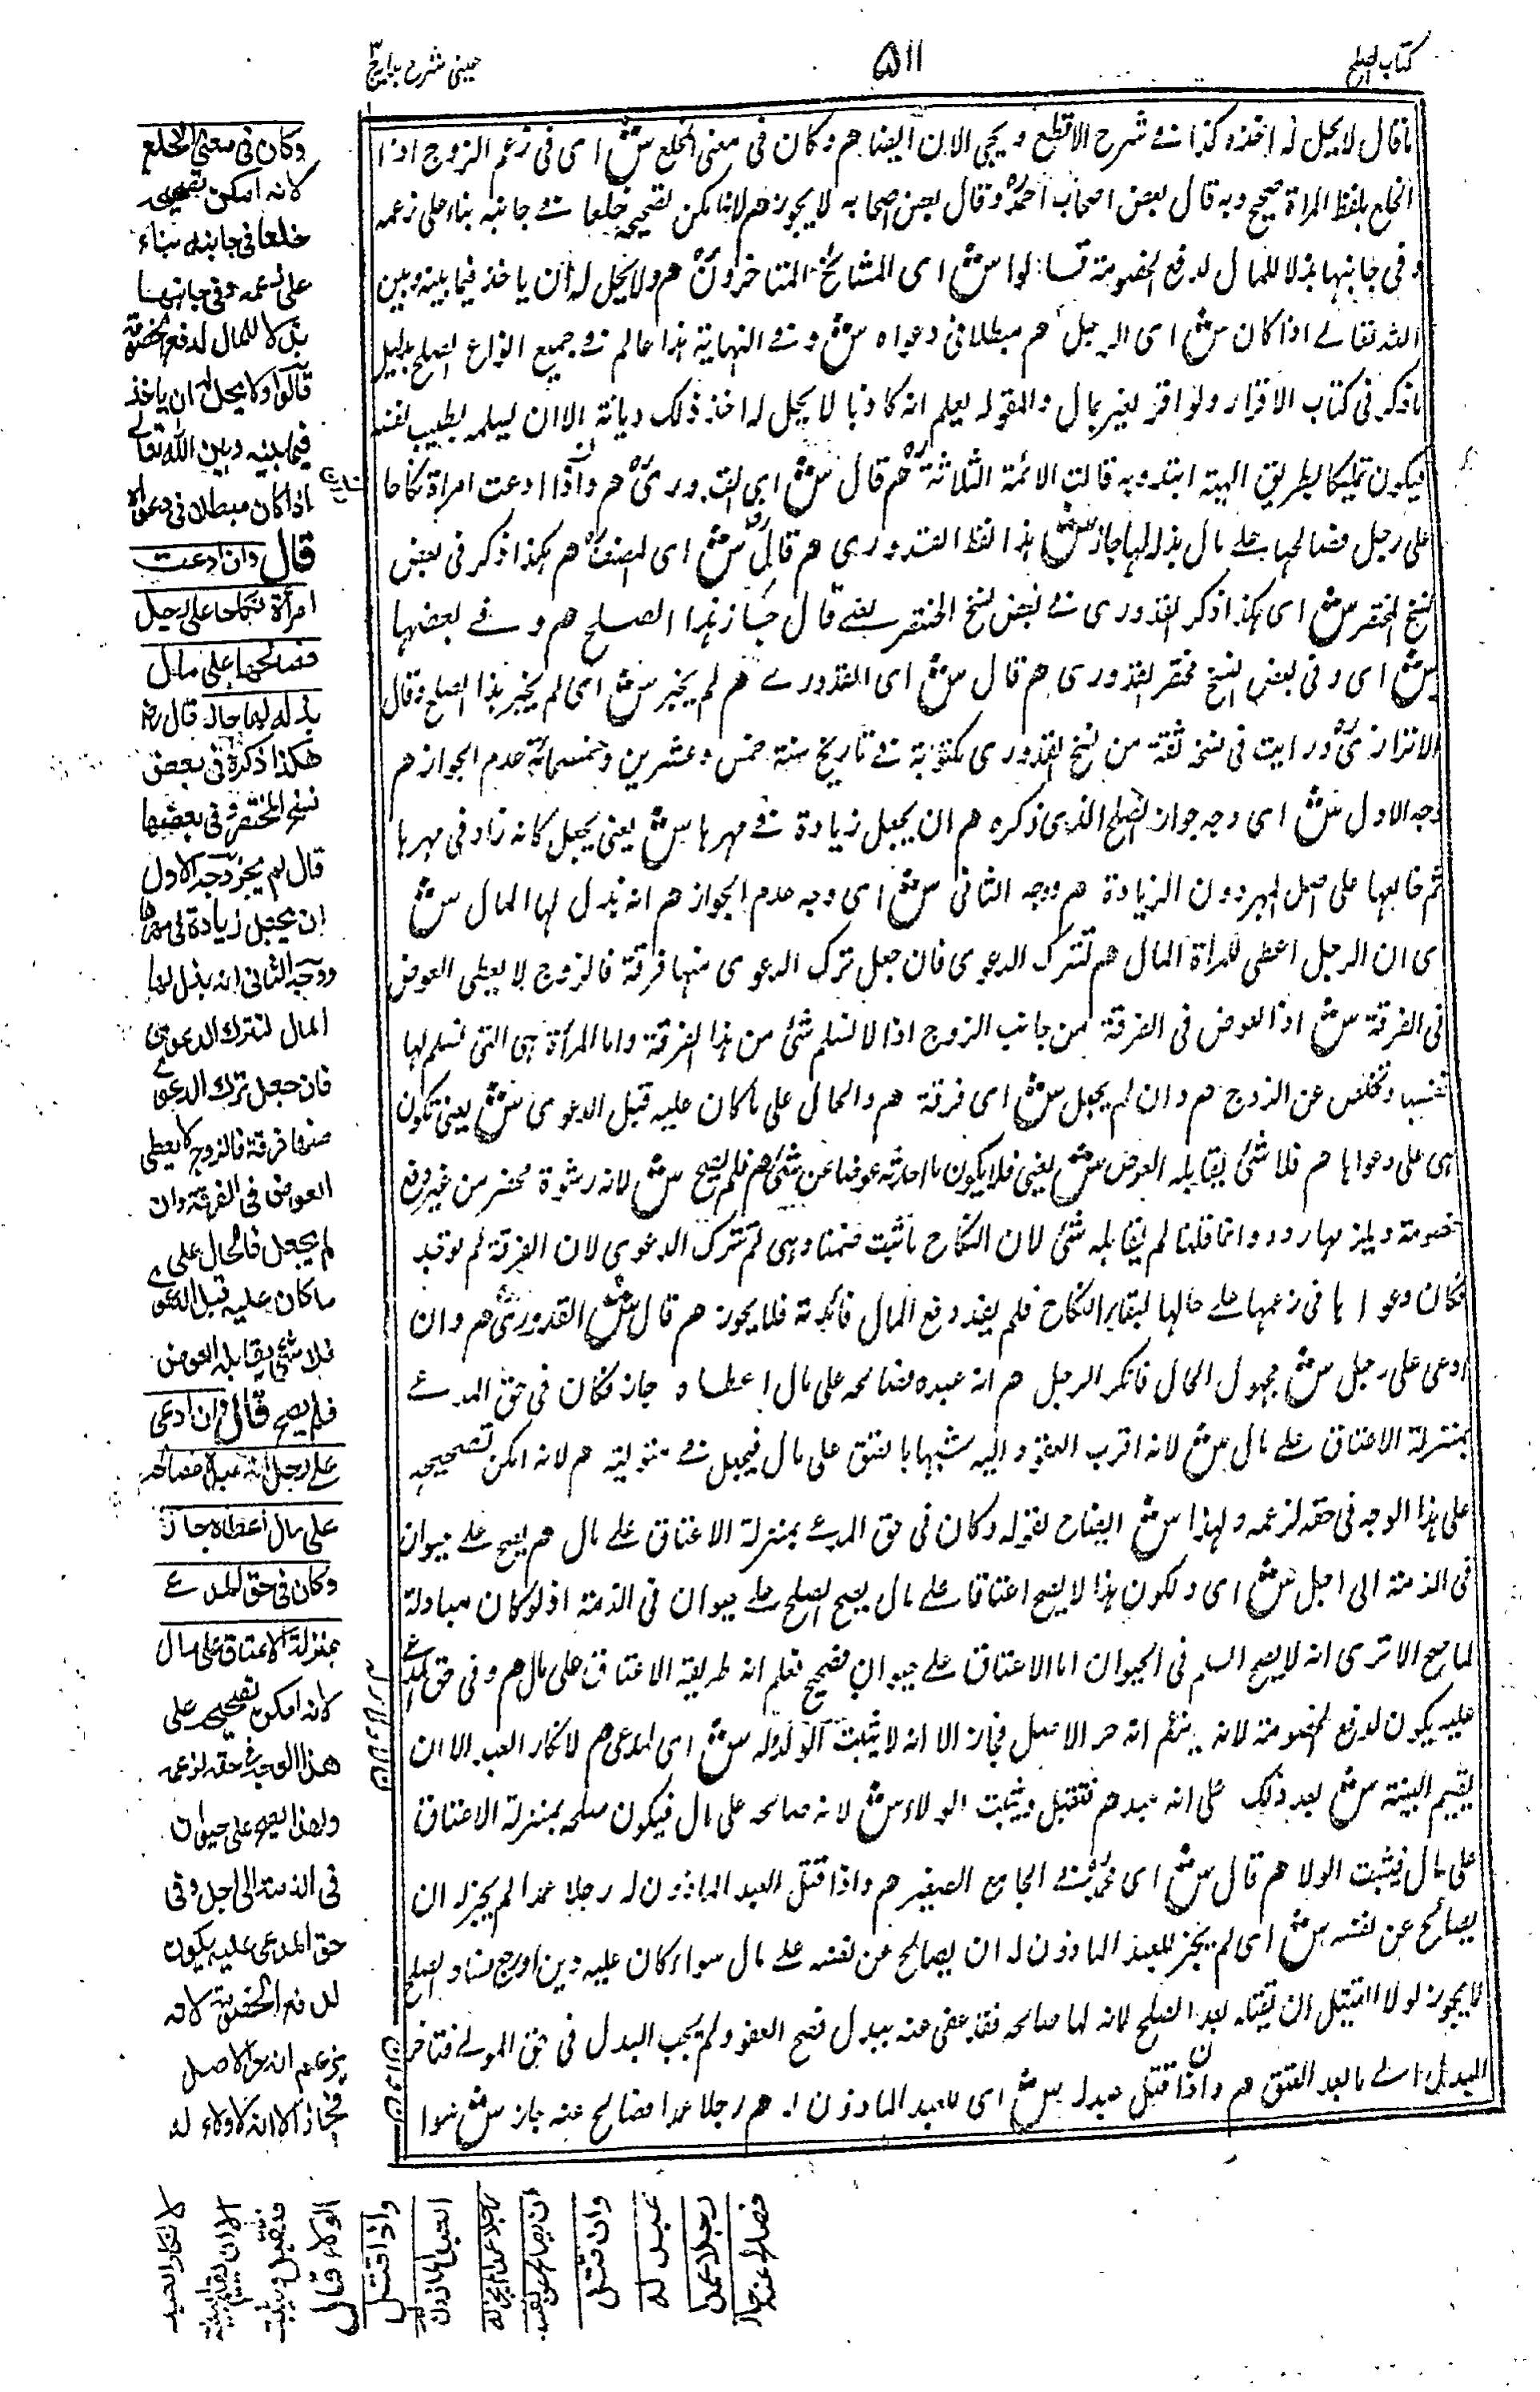 كتاب الصلح
۵۱۱
عینی شرح ہدایہ ج ۳
ما قال لا يحل له اخذه كذا في شرح الاقطع ويجي الان ايضا هم وكان في معنى الخلع ش اى في زعم الزوج اذا
الخلع بلفظ المراة صحيح وبه قال بعض اصحاب احمد وقال بعض اصحابه لا يجوز هم لانه امكن تصحيحه خلعا في جانبه بناء على زعمه
وفي جانبها بذلا للمال لدفع الخصومة قالوا ش اى المشائخ المتاخرون هم ولا يحل له ان ياخذ فيما بينه وبين
الله تعالى اذا كان ش اى الرجل هم مبطلا في دعواه ش وفي النهاية هذا عام في جميع انواع الصلح بدليل
ما ذكر في كتاب الاقرار ولو اقر لغيره بمال والمقر له يعلم انه كاذبا لا يحل له اخذ ذلك ديانة الا ان يسلمه بطيب نفسه
فيكون تمليكا بطريق الهبة ابتداء وبه قالت الائمة الثلاثة هم قال ش اى القدورى هم واذا ادعت امراة نكاحا
على رجل فصالحها على مال بذله لها جاز ش هذا لفظ القدورى هم قال ش اى المصنف هم هكذا ذكر في بعض
نسخ المختصر ش اى هكذا ذكر القدورى في بعض نسخ المختصر يعنى قال جاز هذا الصلح هم وفي بعضها
ش اى وفي بعض النسخ مختصر القدورى هم قال ش اى القدورى هم لم يجز ش اى لم يجز هذا الصلح وقال
الاترازى ورايت في نسخة ثقة من نسخ القدورى مكتوبة في تاريخ سنة خمس وعشرين وخمسمائة عدم الجواز هم
وجه الاول ش اى وجه جواز الصلح الذى ذكره هم ان يجعل زيادة في مهرها ش يعنى يجعل كانه زاد في مهرها
ثم خالعها على اصل المهر دون الزيادة هم ووجه الثانى ش اى وجه عدم الجواز هم انه بذل لها المال ش
اى ان الرجل اعطى للمراة المال هم لتترك الدعوى فان جعل ترك الدعوى منها فرقة فالزوج لا يعطى العوض
في الفرقة ش اذ العوض في الفرقة من جانب الزوج اذا لا تسلم شئ من هذا الفرقة واما المرأة هى التى تسلم لها
نفسها وتخلص عن الزوج هم وان لم يجعل ش اى فرقة هم والحال على ما كان عليه قبل الدعوى ش يعنى تكون
هى على دعواها هم فلا شئ يقابله العوض ش يعنى فلا يكون ما اخذته عوضا عن شئ هم فلم يصح ش لانه رشوة محضر من غير دفع
خصومة ويلزمها رده وانما قلنا لم يقابله شئ لان النكاح ما ثبت ضمنا وهى لم تترك الدعوى لان الفرقة لم توجد
فكان دعواها في زعمها على حالها لبقاء النكاح فلم يفد دفع المال فائدة فلا يجوز هم قال ش القدورى هم وان
ادعى على رجل ش مجهول الحال فانكر الرجل هم انه عبده فصالحه على مال اعطاه جاز فكان في حق المدعى
بمنزلة الاعتاق على مال ش لانه اقرب العقود اليه شبها بالعتق على مال فيجعل في منزلته هم لانه امكن تصحيحه
على هذا الوجه في حقه لزعمه ولهذا ش ايضاح لقوله وكان في حق المدعى بمنزلة الاعتاق على مال هم يصح على حيوان
في الذمة الى اجل ش اى ولكون هذا لا يصح اعتاقا على مال يصح الصلح على حيوان في الذمة اذ لو كان مبادلة
لما صح الا ترى انه لا يصح السلم في الحيوان اما الاعتاق على حيوان فصحيح فعلم انه طريقة الاعتاق على مال هم وفي حق المدعى
عليه يكون لدفع الخصومة لانه يزعم انه حر الاصل فجاز الا انه لا يثبت الولاء له ش اى للمدعى هم لانكار العبد الا ان
يقيم البينة ش بعد ذلك على انه عبده هم فتقبل ويثبت الولاء ش لانه صالحه على مال فيكون صلحه بمنزلة الاعتاق
على مال فيثبت الولا هم قال ش اى محمد في الجامع الصغير هم واذا قتل العبد الماذون له رجلا عمدا لم يجز له ان
يصالح عن نفسه ش اى لم يجز للعبد الماذون له ان يصالح عن نفسه على مال سواء كان عليه دين او
لا يجوز لولا القتيل ان يقتله بعد الصلح لانه لما صالحه فقد عفى عنه ببدل فصح العفو ولم يجب البدل في حق المولى فتاخر
البدل الى ما بعد العتق هم واذا قتل عبد له ش اى للعبد الماذون له هم رجلا عمدا فصالح عنه جاز ش سوا
وكان فى معنى الخلع
لانه امكن تصحيحه
خلعا فى جانبه بناء
على زعمه وفى جانبها
بذلا للمال لدفع الخصومة
قالوا ولا يحل له ان ياخذ
فيما بينه وبين الله تعالى
اذا كان مبطلا فى دعواه
قال وان ادعت
امرأة نكاحا على رجل
فصالحها على مال
بذله لها جاز قال رض
هكذا ذكره فى بعض
نسخ المختصر وفى بعضها
قال لم يجز وجه الاول
ان يجعل زيادة فى مهرها
ووجه الثانى انه بذل لها
المال لتترك الدعوى
فان جعل ترك الدعوى
منها فرقة فالزوج لا يعطى
العوض فى الفرقة وان
لم يجعل فالحال على
ما كان عليه قبل الدعوى
فلا شئ يقابله العوض
فلم يصح قال وان ادعى
على رجل انه عبده فصالحه
على مال اعطاه جاز
وكان فى حق المدعى
بمنزلة الاعتاق على مال
لانه امكن تصحيحه على
هذا الوجه فى حقه لزعمه
ولهذا يصح على حيوان
فى الذمة الى اجل وفى
حق المدعى عليه يكون
لدفع الخصومة لانه
يزعم انه حر الاصل
فجاز الا انه لا ولاء له
لانكار العبد
الا ان يقيم البينة
فتقبل ويثبت
الولاء قال
واذا قتل
العبد الماذون له
رجلا عمدا لم يجز له
ان يصالح عن نفسه
وان قتل
عبد له
رجلا عمدا
فصالح عنه جاز